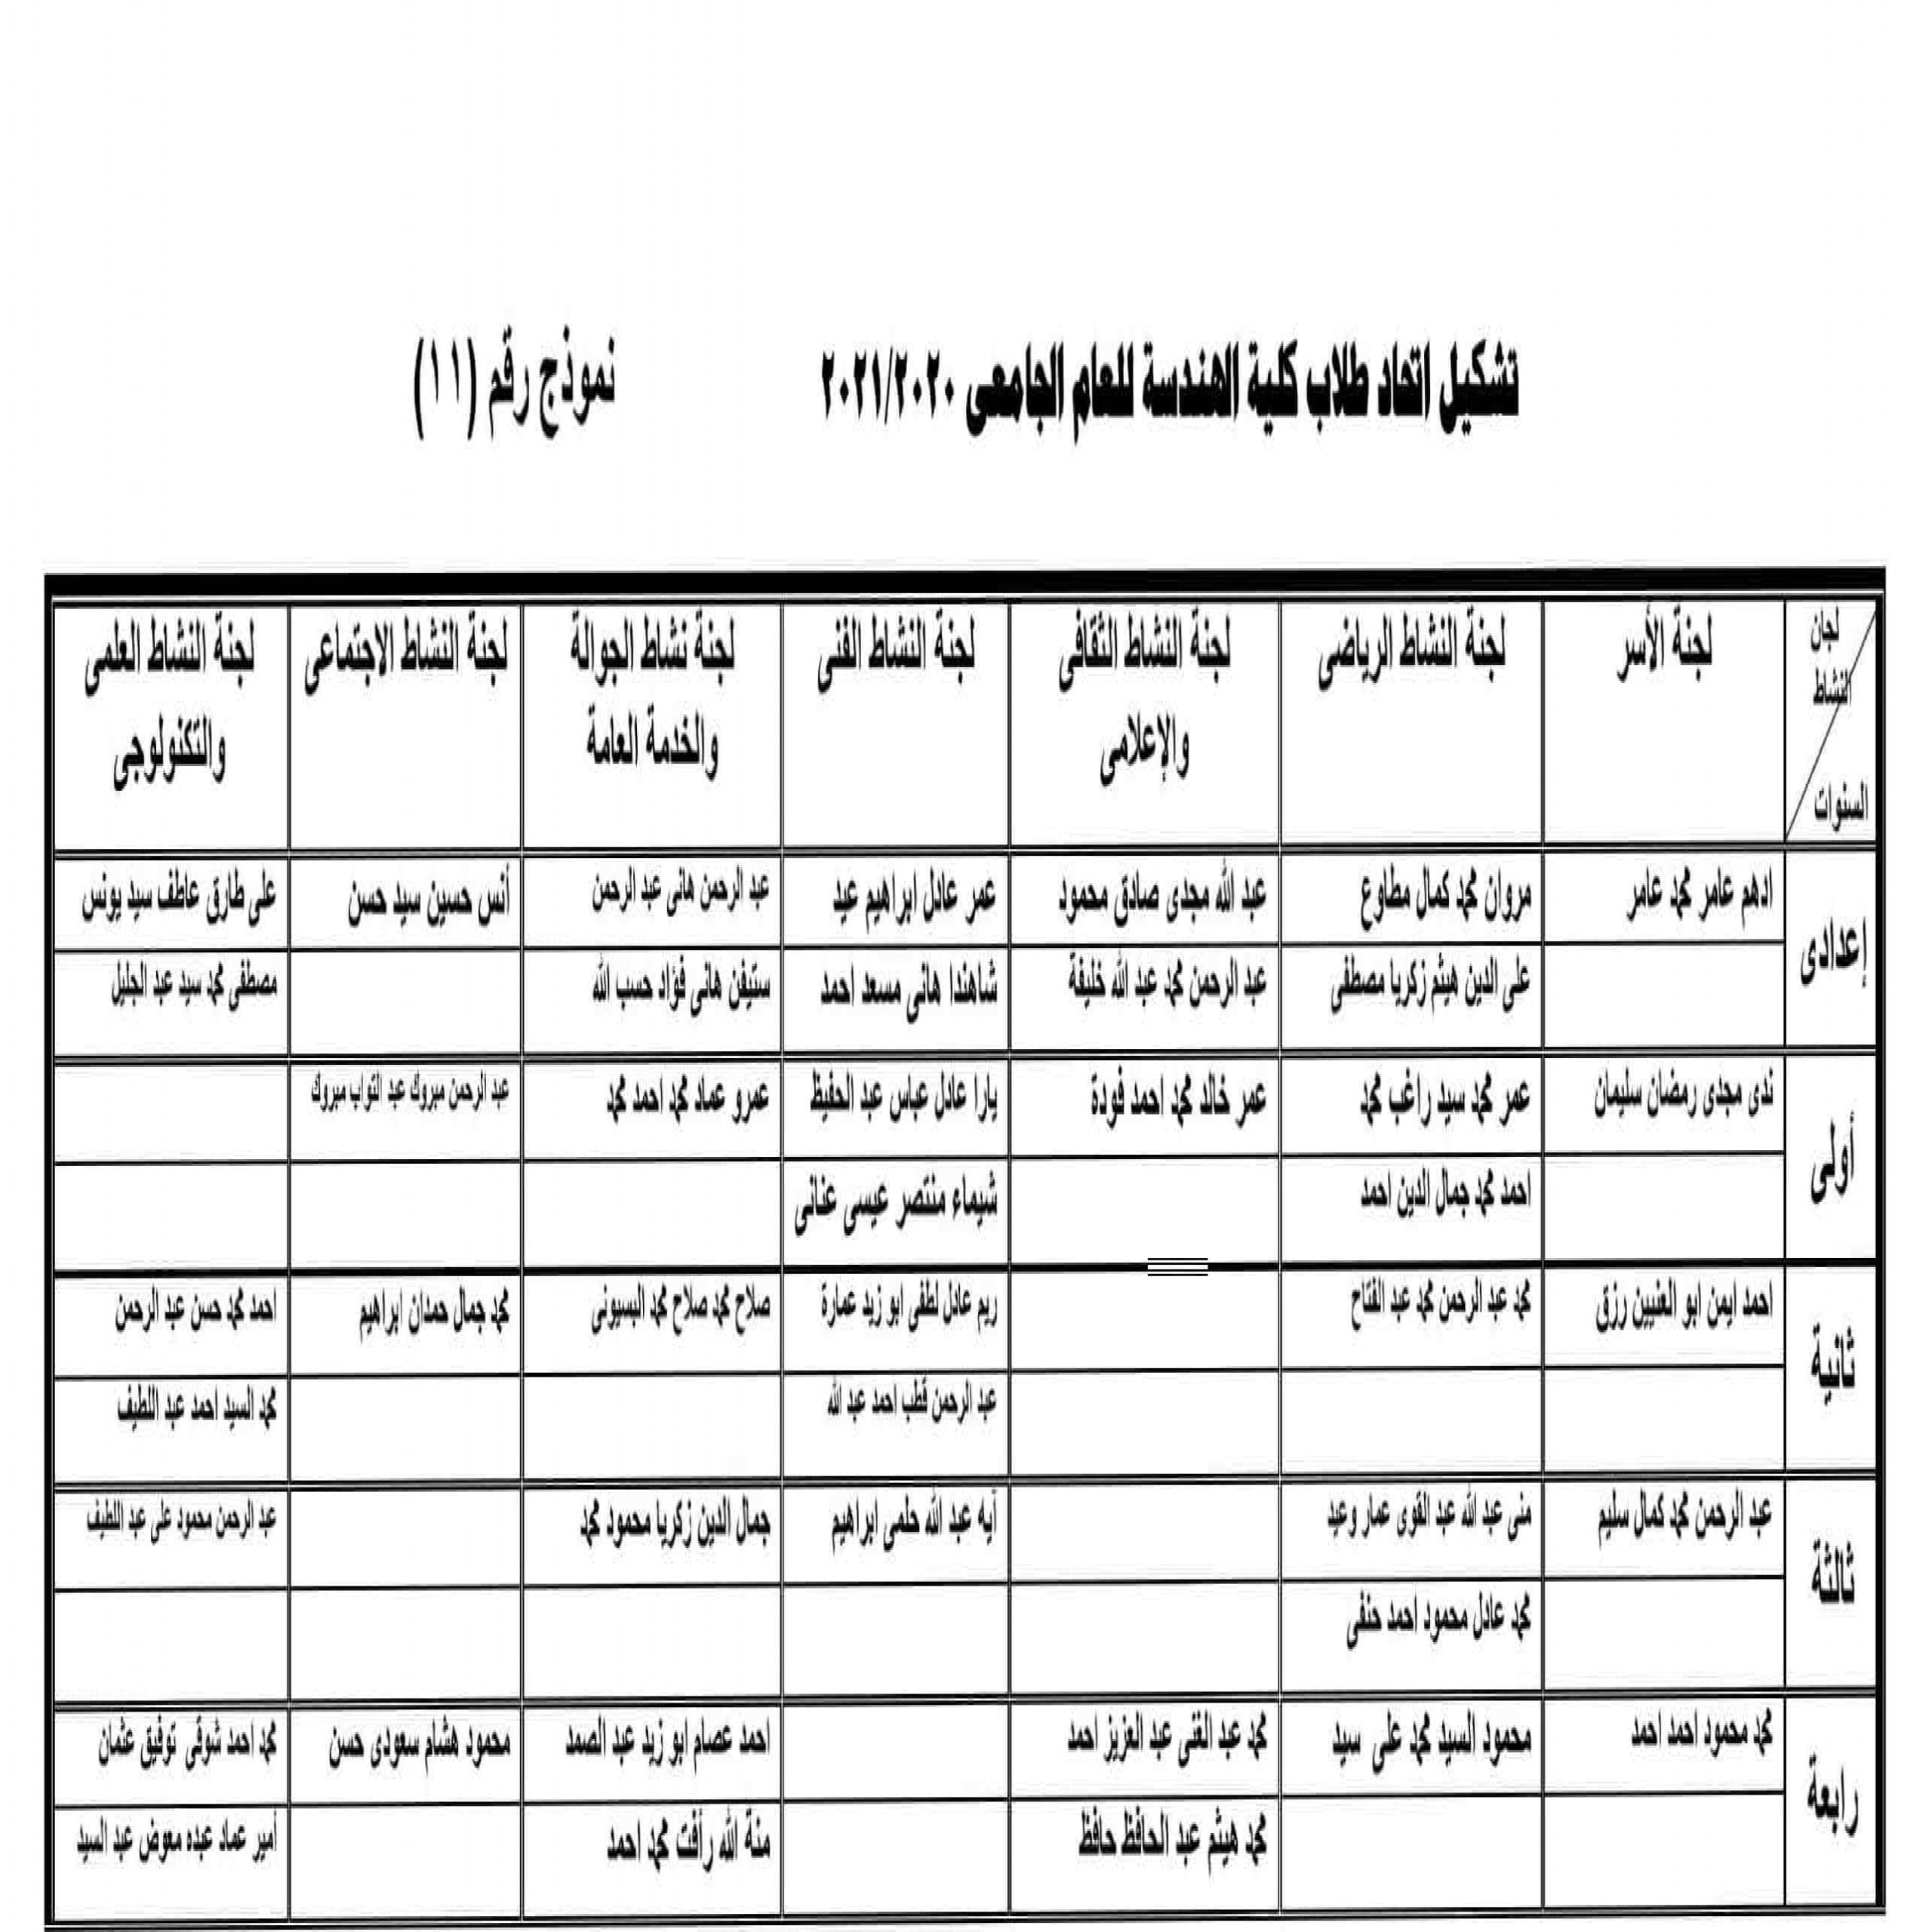 تشكيل اتحاد طلاب كلية الهندسة للعام الجامعى ٢٠٢١/٢٠٢٠ نموذج رقم (١١)
لجان النشاط السنوات
لجنة الأسر
لجنة النشاط الرياضى
لجنة النشاط الثقافى والإعلامى
لجنة النشاط الفنى
لجنة نشاط الجوالة والخدمة العامة
لجنة النشاط الاجتماعى
لجنة النشاط العلمى والتكنولوجى
إعدادى
ادهم عامر محمد عامر
مروان محمد كمال مطاوع
عبد الله مجدى صادق محمود
عمر عادل ابراهيم عيد
عبد الرحمن هانى عبد الرحمن
أنس حسين سيد حسن
على طارق عاطف سيد يونس
على الدين هيثم زكريا مصطفى
عبد الرحمن محمد عبد الله خليفة
شاهندا هانى مسعد احمد
ستيفن هانى فؤاد حسب الله
مصطفى محمد سيد عبد الجليل
أولى
ندى مجدى رمضان سليمان
عمر محمد سيد راغب محمد
عمر خالد محمد احمد فودة
يارا عادل عباس عبد الحفيظ
عمرو عماد محمد احمد محمد
عبد الرحمن مبروك عبد التواب مبروك
احمد محمد جمال الدين احمد
شيماء منتصر عيسى عنانى
ثانية
احمد ايمن ابو العنيين رزق
محمد عبد الرحمن محمد عبد الفتاح
ريم عادل لطفى ابو زيد عمارة
صلاح محمد صلاح محمد البسيونى
محمد جمال حمدان ابراهيم
احمد محمد حسن عبد الرحمن
عبد الرحمن قطب احمد عبد الله
محمد السيد احمد عبد اللطيف
ثالثة
عبد الرحمن محمد كمال سليم
منى عبد الله عبد القوى عمار وعيد
أيه عبد الله حلمى ابراهيم
جمال الدين زكريا محمود محمد
عبد الرحمن محمود على عبد اللطيف
محمد عادل محمود احمد حنفى
رابعة
محمد محمود احمد احمد
محمود السيد محمد على سيد
محمد عبد الغنى عبد العزيز احمد
احمد عصام ابو زيد عبد الصمد
محمود هشام سعودى حسن
محمد احمد شوقى توفيق عثمان
محمد هيثم عبد الحافظ حافظ
منة الله رأفت محمد احمد
أمير عماد عبده معوض عبد السيد